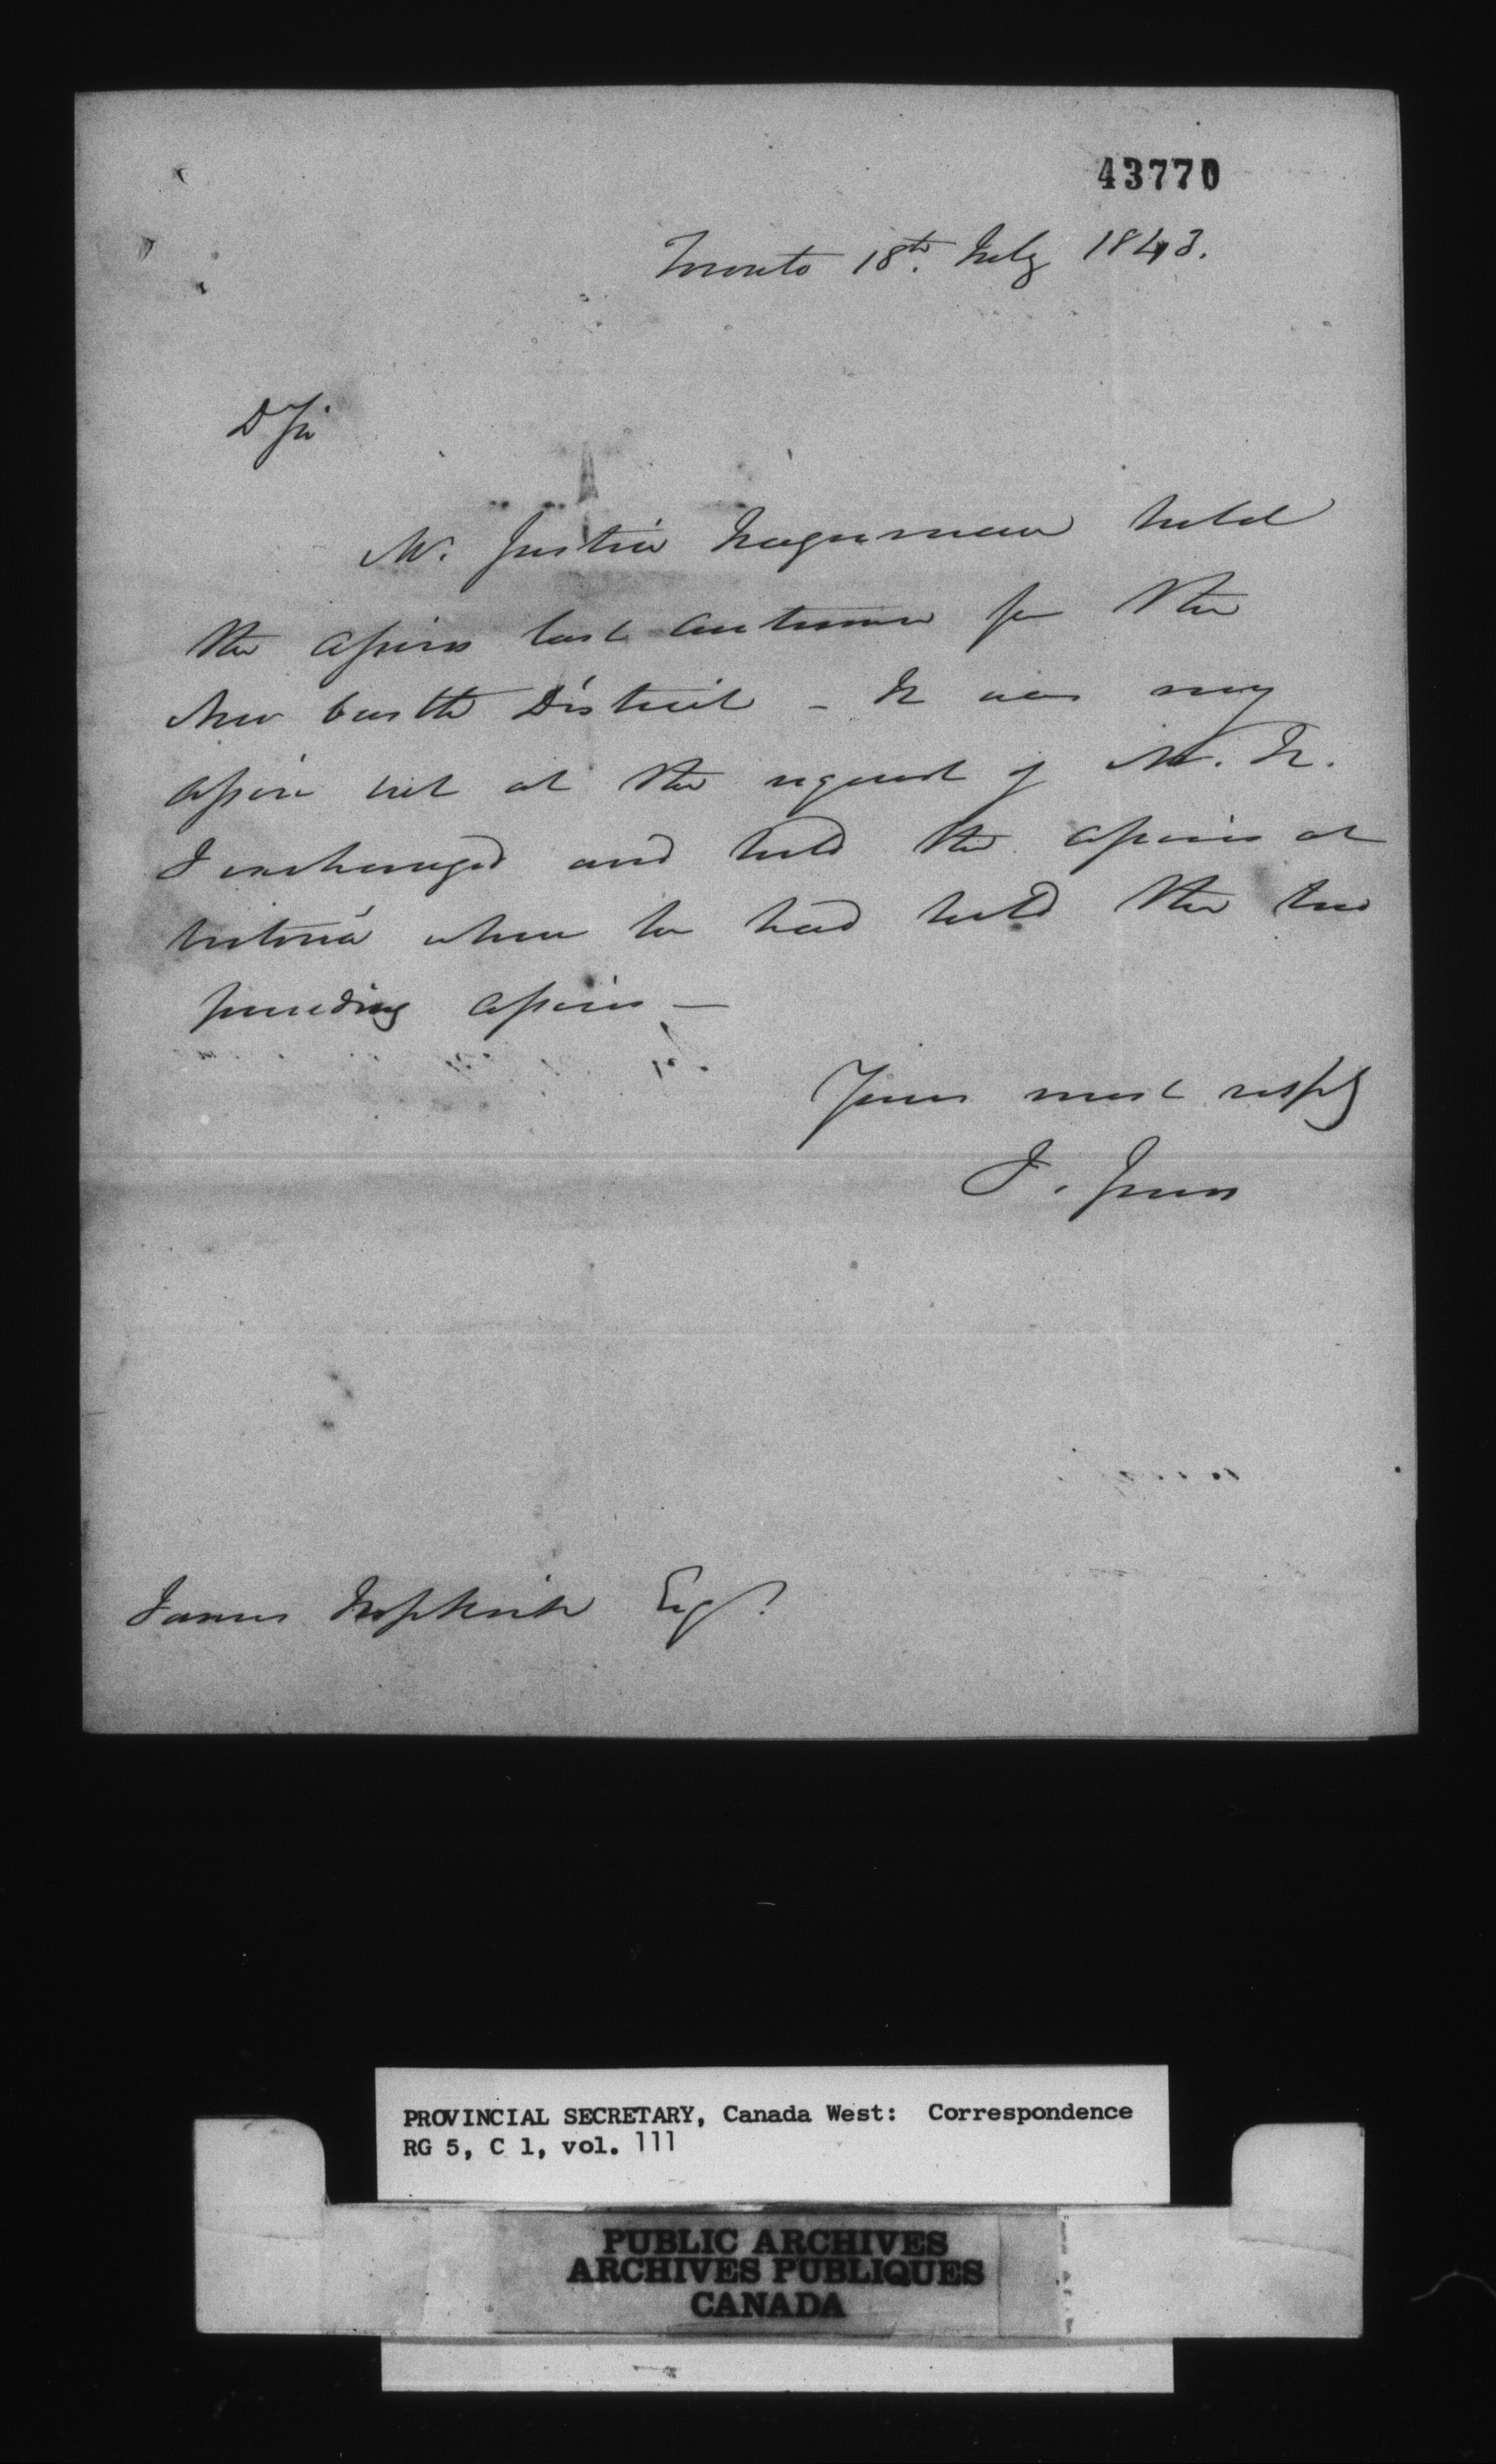 43770
Toronto 18th. July 1843.
D Sir
Mr. Justice Hagerman held
the assizes last autumn for the
New Castle District - It was my
assize but at the request of Mr. H.
I exchanged and held the assizes at
Victoria where he had held the two
preceeding assizes —
Yours most respy
J. Jones
James Hopkirk Esqr.
PROVINCIAL SECRETARY, Canada West: Correspondence
RG 5, C 1, vol. 111
PUBLIC ARCHIVES
ARCHIVES PUBLIQUES
CANADA